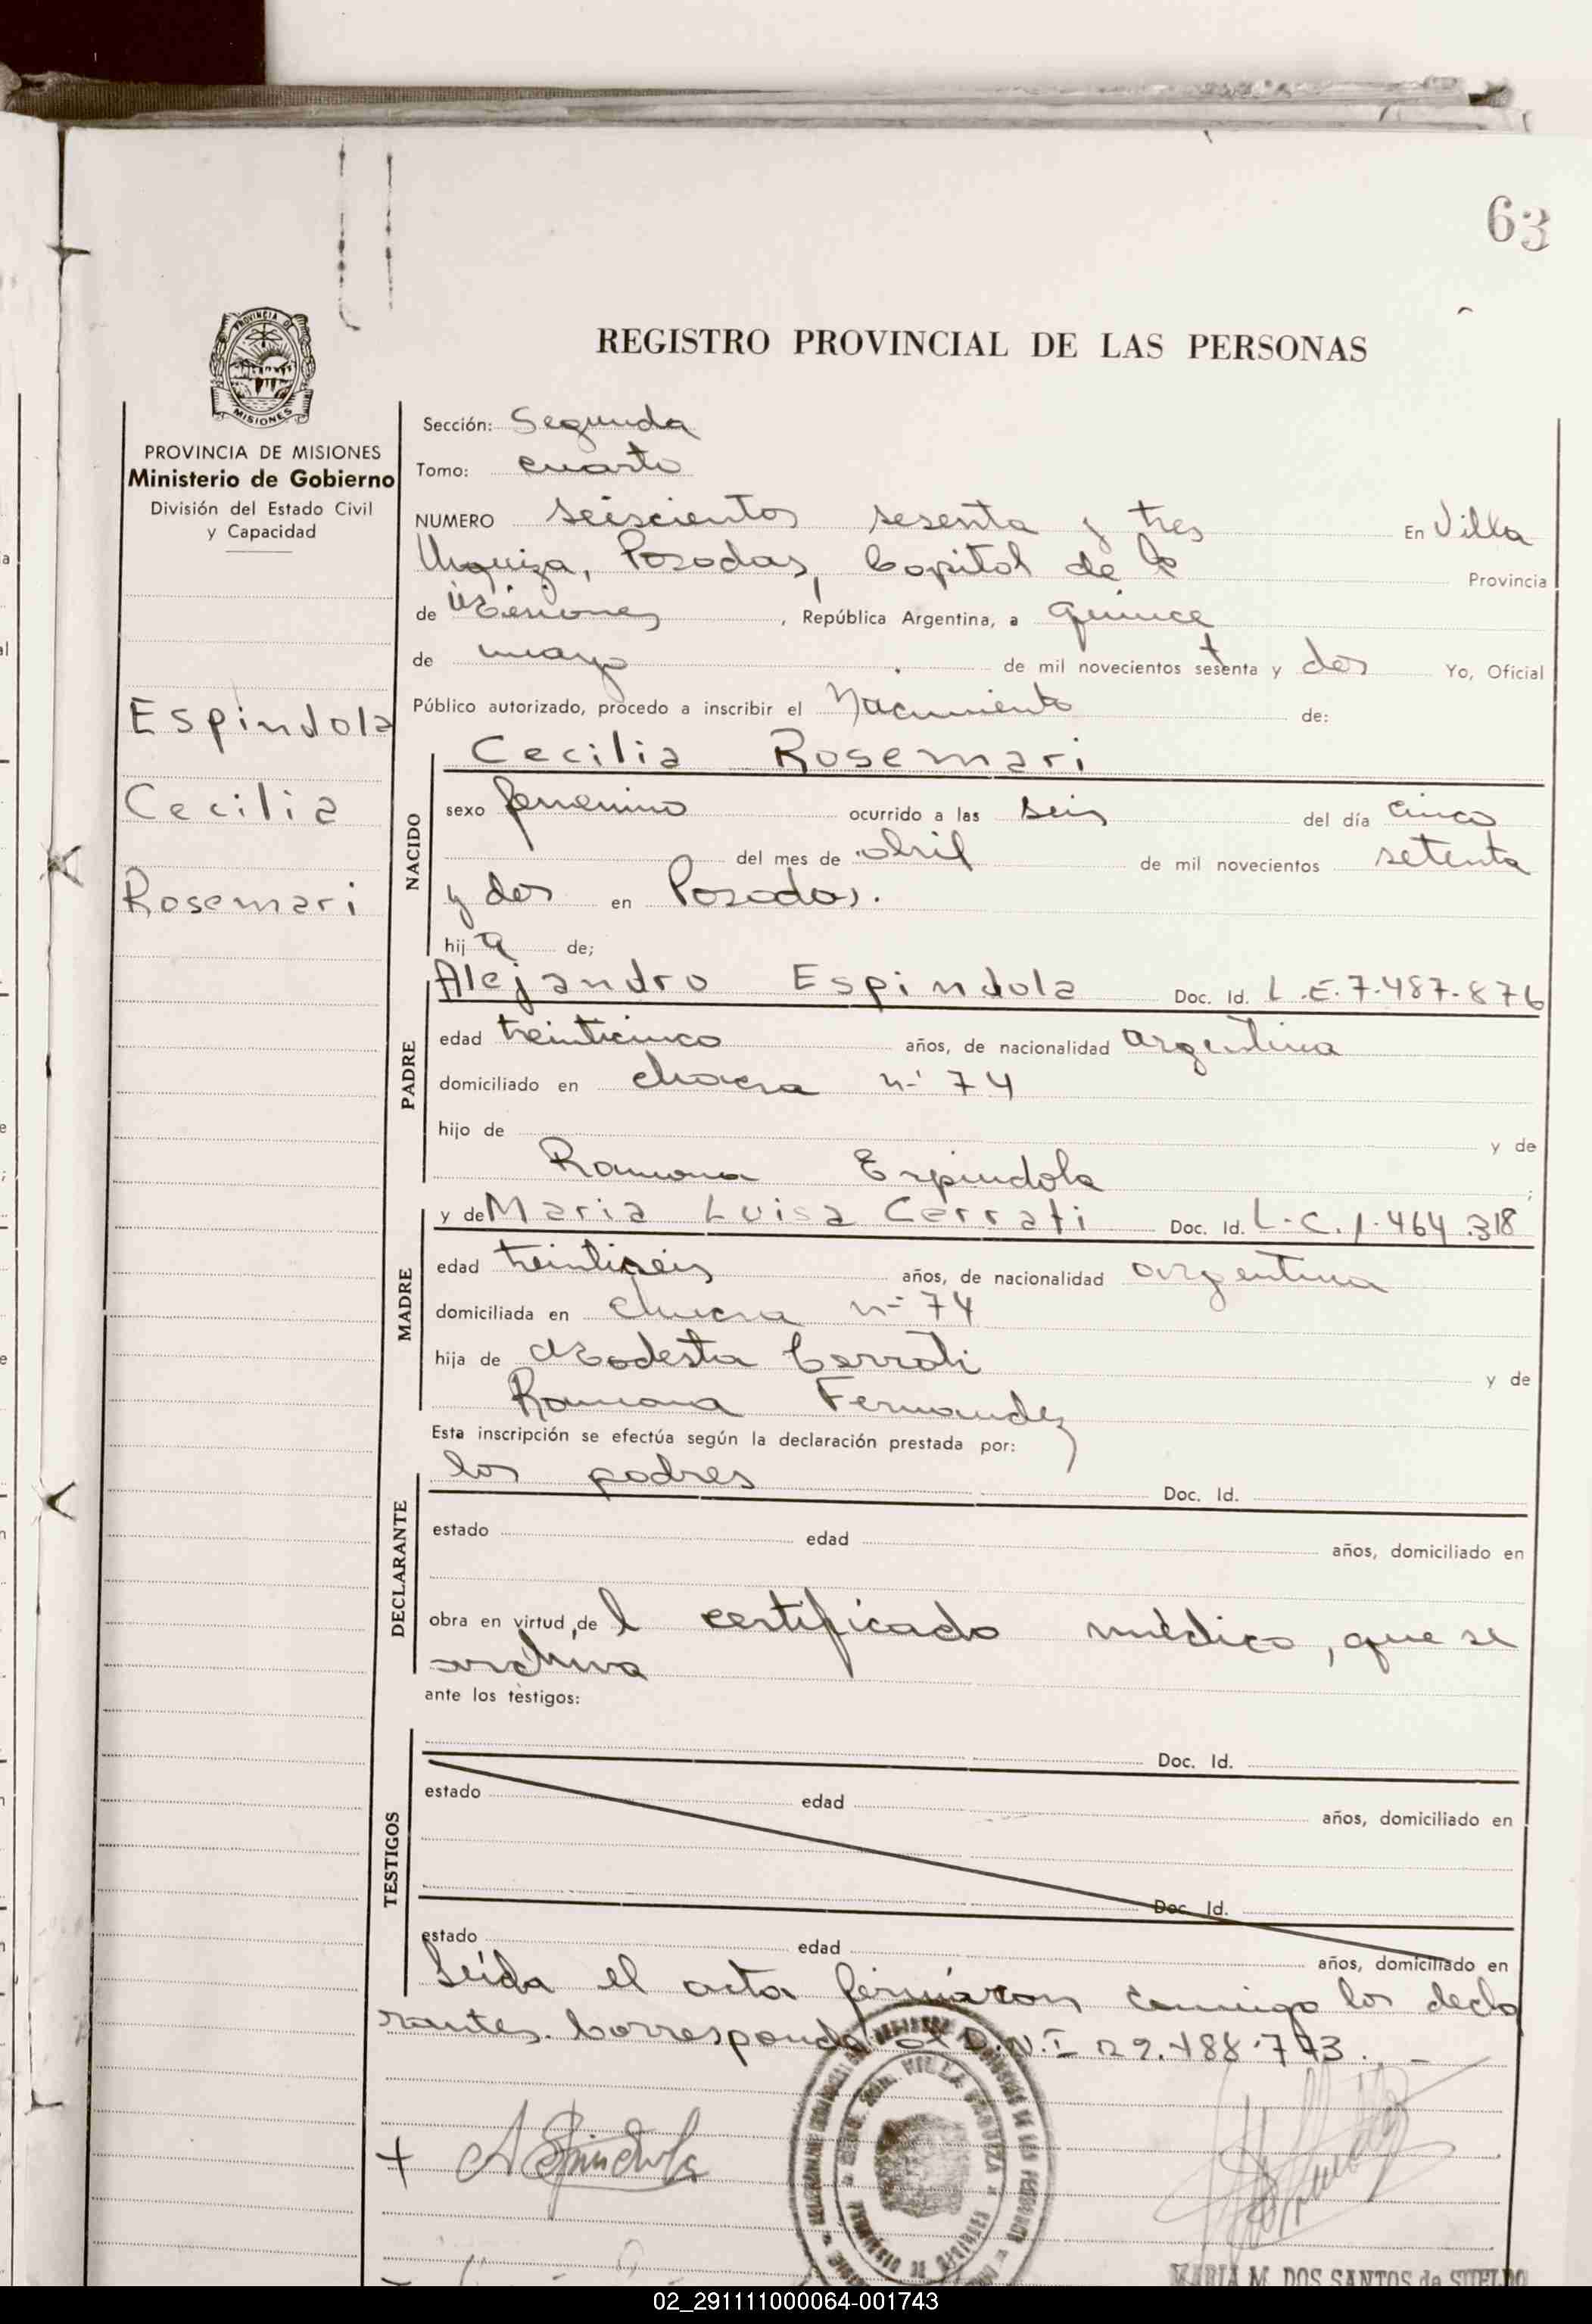 63
REGISTRO PROVINCIAL DE LAS PERSONAS
PROVINCIA DE
MISIONES
PROVINCIA DE MISIONES
Ministerio de Gobierno
División del Estado Civil
y Capacidad
Espindola
Cecilia
Rosemari
Sección: Segunda
Tomo: cuarto
NUMERO seiscientos sesenta y tres En Villa
Urquiza, Posadas, Capital de la Provincia
de Misiones, República Argentina, a quince
de mayo de mil novecientos setenta y dos Yo, Oficial
Público autorizado, procedo a inscribir el Nacimiento de:
NACIDO
Cecilia Rosemari
sexo femenino ocurrido a las seis del día cinco
del mes de abril de mil novecientos setenta
y dos en Posadas.
hija de;
PADRE
Alejandro Espindola Doc. Id. L.E. 7.487.876
edad treinticinco años, de nacionalidad argentina
domiciliado en chacra n-° 74
hijo de y de
Ramona Espindola;
MADRE
y de Maria Luisa Cerrati Doc. Id. L.C. 1.464.318
edad treintiseis años, de nacionalidad argentina
domiciliada en chacra n-° 74
hija de Modesta Cerrati y de
Ramona Fernandez
Esta inscripción se efectúa según la declaración prestada por:
DECLARANTE
los padres Doc. Id.
estado edad años, domiciliado en
obra en virtud de l certificado médico, que se
archiva
ante los testigos:
TESTIGOS
Doc. Id.
estado edad años, domiciliado en
Doc. Id.
estado edad años, domiciliado en
Leída el acta firmaron conmigo los decla
rantes. Corresponde al D.N.I
A Espindola
VILLA URQUIZA
MARIA M. DOS SANTOS de SUELDO
02_291111000064-001743